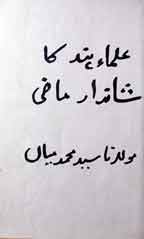 علماء ہند کا
شاندار ماضی
مولانا سید محمد میاں